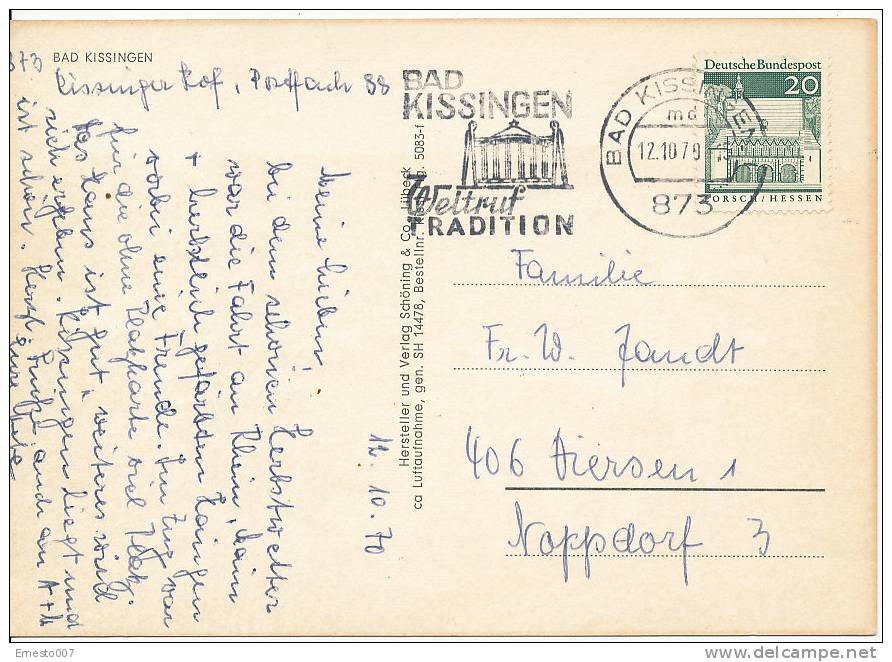 BAD KISSINGEN
873 Kissinger Hof, Postfach 88
12.10.70
Meine Lieben!
bei dem schönen Herbstwetter
war die Fahrt an Rhein, Main
+ herbstlich gefärbten Hainen
vorbei eine Freude. Im Zug war
für die ohne Platzkarte viel Platz.
Das Haus ist gut, weiteres wird
sich ergeben. Kissingen liegt und
ist schön. Herzl. Grüße auch an A+H
eure
Hersteller und Verlag Schöning & Co., Lübeck
ca Luftaufnahme, gen. SH 14478, Bestellnr. 5083-f
BAD
KISSINGEN
Weltruf
TRADITION
BAD KISSINGEN
md
12.10.70
873
Deutsche Bundespost
20
LORSCH/HESSEN
Familie
Fr. W. Jandt
406 Viersen 1
Noppdorf 3
Ernesto007
www.delcampe.net